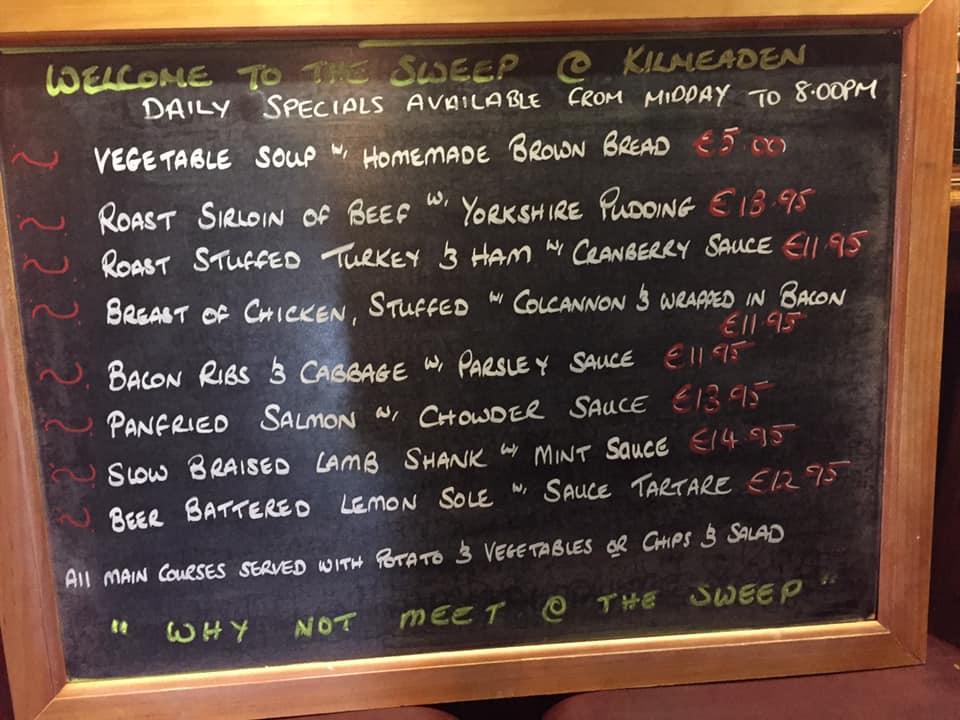 WELCOME TO THE SWEEP @ KILMEADEN
DAILY SPECIALS AVAILABLE FROM MIDDAY TO 8.00PM
VEGETABLE SOUP w/ HOMEMADE BROWN BREAD €5.00
ROAST SIRLOIN OF BEEF w/ YORKSHIRE PUDDING €13.95
ROAST STUFFED TURKEY & HAM w/ CRANBERRY SAUCE €11.95
BREAST OF CHICKEN, STUFFED w/ COLCANNON & WRAPPED IN BACON
€11.95
BACON RIBS & CABBAGE w/ PARSLEY SAUCE €11.95
PANFRIED SALMON w/ CHOWDER SAUCE €13.95
SLOW BRAISED LAMB SHANK w/ MINT SAUCE €14.95
BEER BATTERED LEMON SOLE w/ SAUCE TARTARE €12.95
All MAIN COURSES SERVED WITH POTATO & VEGETABLES OR CHIPS & SALAD
"WHY NOT MEET @ THE SWEEP"